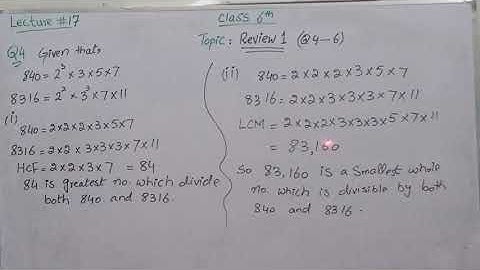 Lecture #17
Class 6th
Topic: Review 1 (Q4-6)
Q4 Given that,
840 = 2³ × 3 × 5 × 7
8316 = 2² × 3³ × 7 × 11
(i)
840 = 2×2×2×3×5×7
8316 = 2×2×3×3×3×7×11
HCF = 2×2×3×7 = 84
84 is greatest no. which divide
both 840 and 8316.
(ii) 840 = 2×2×2×3×5×7
8316 = 2×2×3×3×3×7×11
LCM = 2×2×2×3×3×3×5×7×11
= 83,160
So 83,160 is a Smallest whole
no. which is divisible by both
840 and 8316.